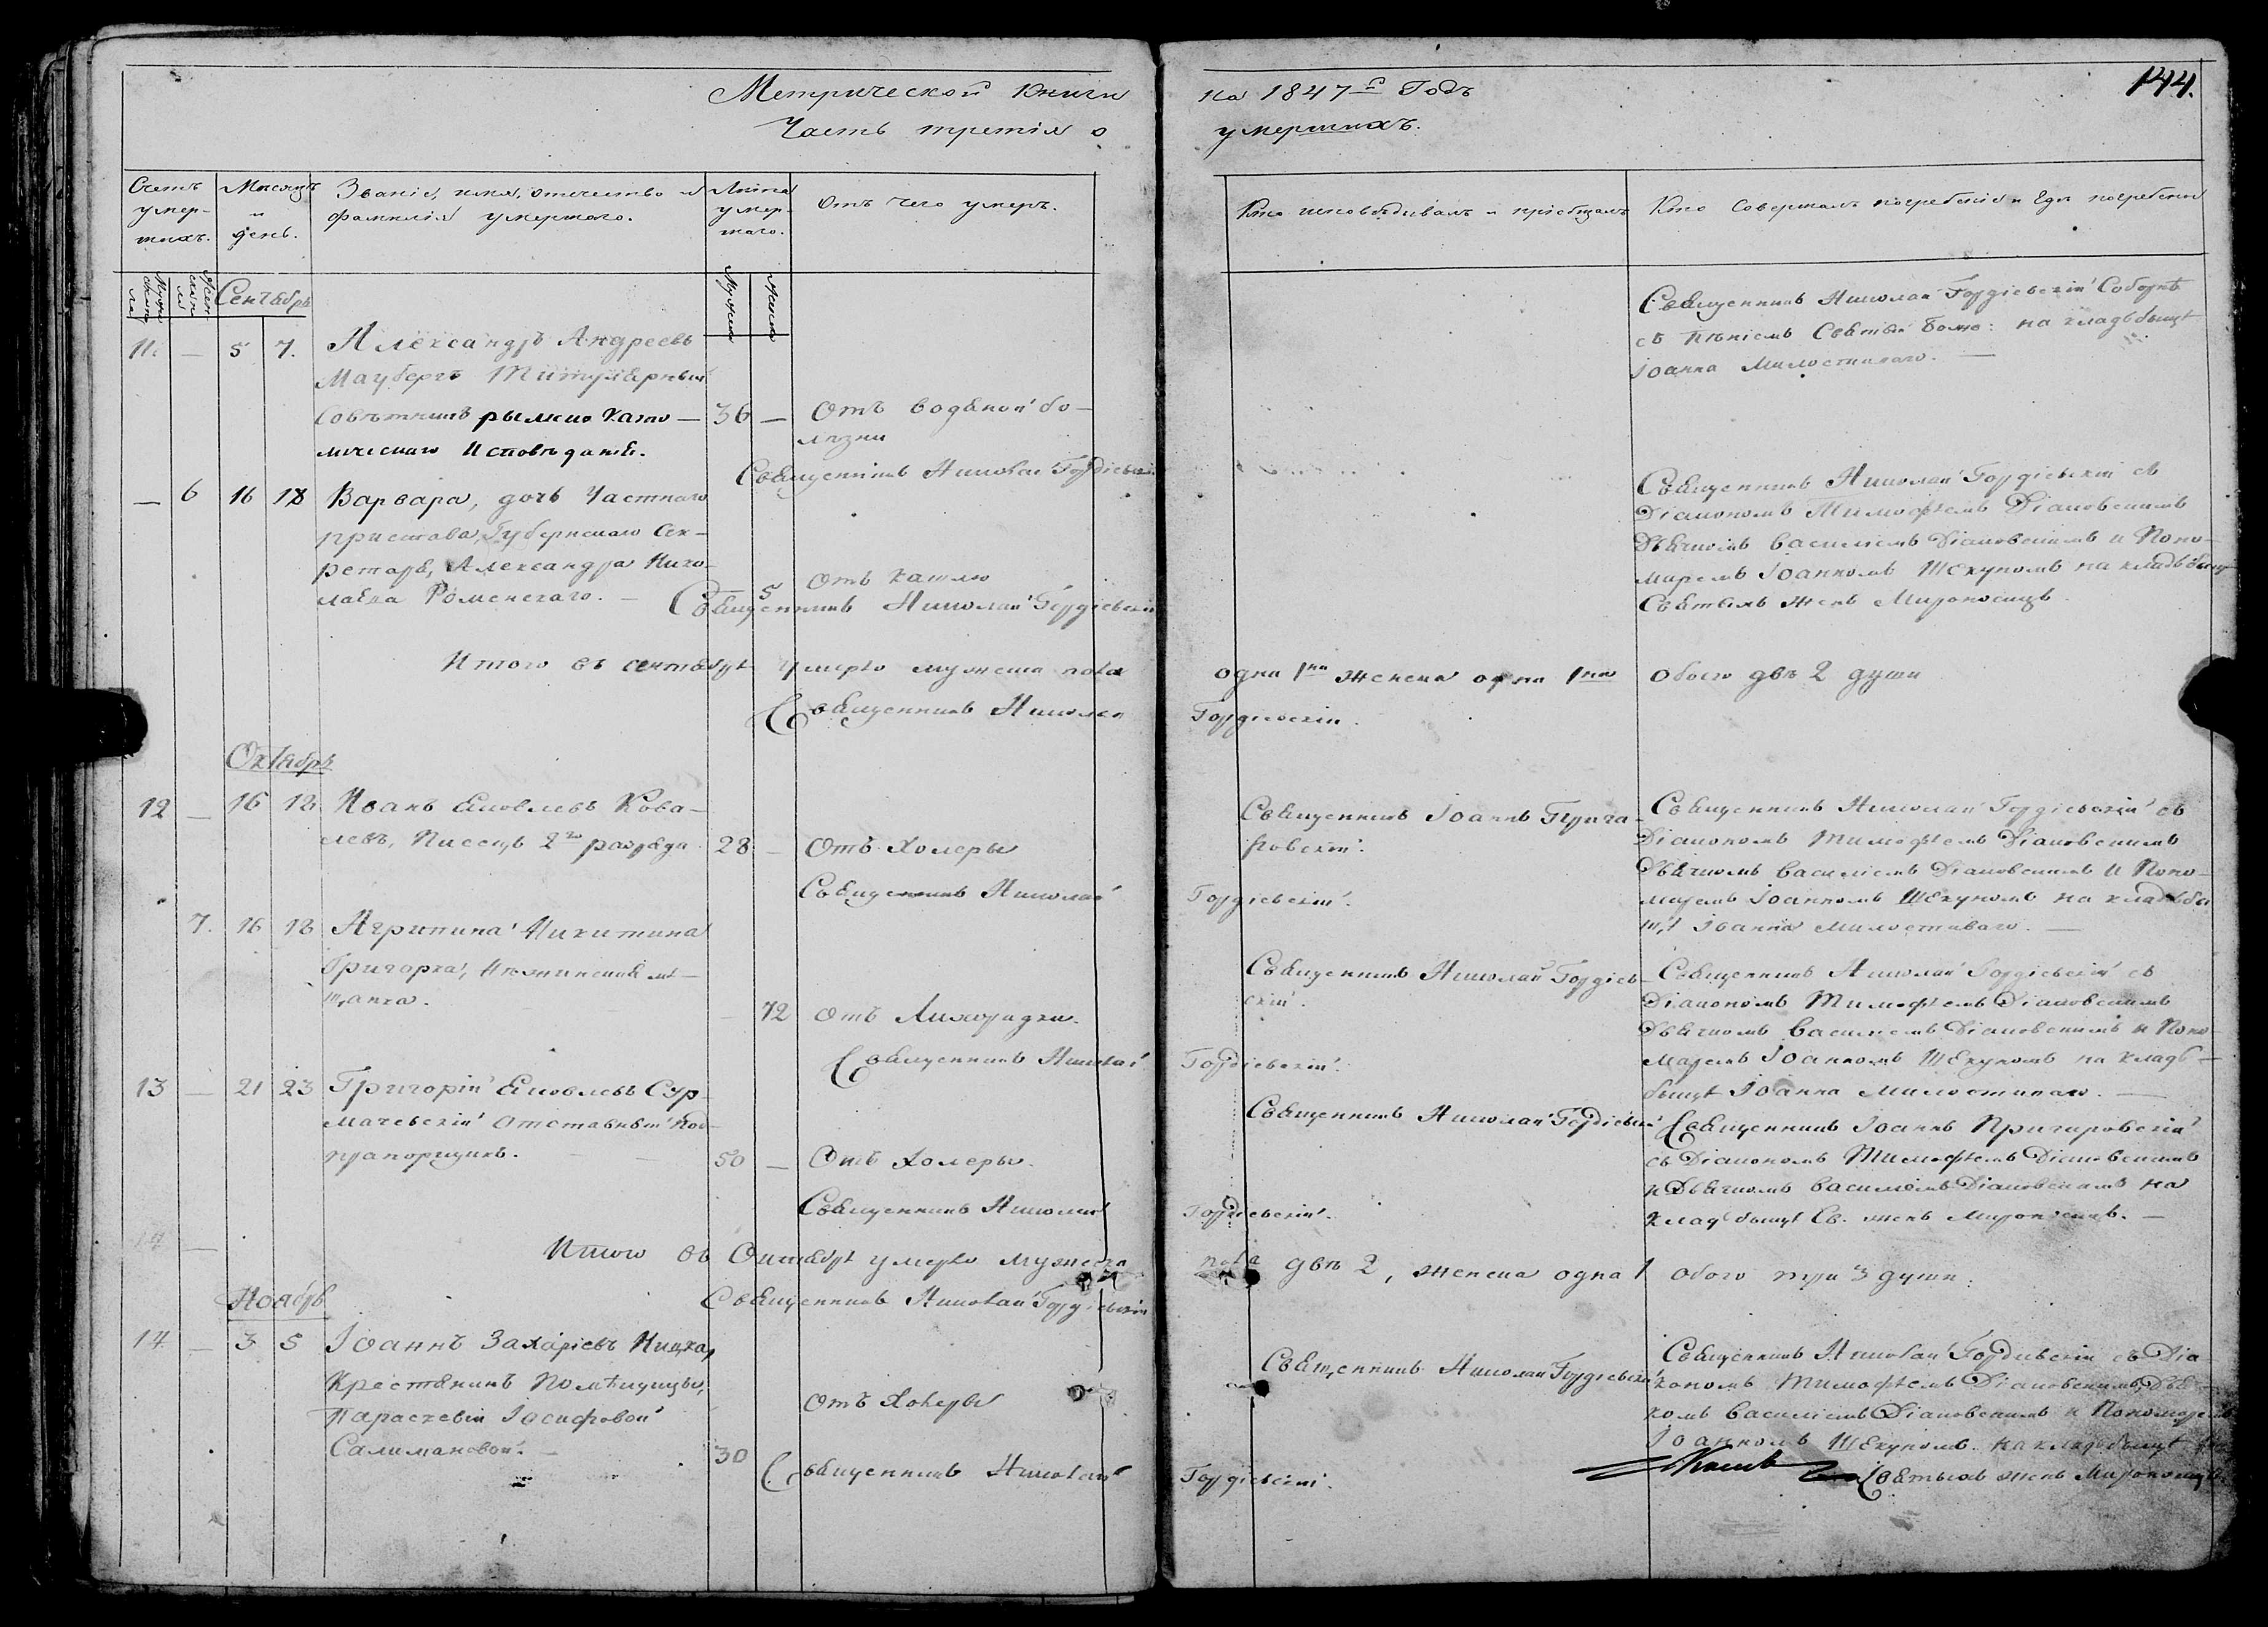 144.
Метрической Книги на 1847й Годъ
Часть третія о умершихъ.
Счетъ умер-шихъ.
Мѣсяцъ и день.
Званіе, имя, отчество и фамилія умершаго.
Лѣта умер-шаго.
Отъ чего умеръ.
Кто исповѣдывалъ и пріобщалъ
Кто Совершалъ погребеніе и Гдѣ погребены
Сентябрь
11. — 5 7. Александръ Андреевъ
Маубергъ Титулярный
Совѣтникъ рымско Като-
лическаго Исповѣданія.
36 — Отъ водяной бо-
лѣзни
Священникъ Николай Гордіевскій
Священникъ Николай Гордіевскій Соборнѣ
съ пѣніемъ Святый Боже: на кладбыщѣ
Іоанна Милостиваго. —
— 6 16 18 Варвара, дочь Частнаго
пристава, Губернскаго Сек-
ретаря, Александра Нико-
лаева Роменскаго. —
5 Отъ кашлю
Священникъ Николай Гордіевскій
Священникъ Николай Гордіевскій съ
Діакономъ Тимофѣемъ Діаковскимъ
Дьячкомъ Василіемъ Діаковскимъ и Поно-
маремъ Іоанномъ Шекуномъ на кладбыщ
Святыхъ Женъ Мироносицъ.
Итого въ сентябрѣ умерло мужеска пола одна 1на женска одна 1на обоего двѣ 2 души
Священникъ Николай Гордіевскій.
Октябрь
12 — 16 18 Иванъ Яковлевъ Кова-
левъ, Писецъ 2го разряда
28 — Отъ Холеры
Священникъ Николай Гордіевскій.
Священникъ Іоаннъ Прига-
ровскій.
Священникъ Николай Гордіевскій съ
Діакономъ Тимофѣемъ Діаковскимъ
Дьячкомъ Василіемъ Діаковскимъ и Поно-
маремъ Іоанномъ Шекуномъ на кладбы
щѣ Іоанна Милостиваго. —
7. 16 18 Агрипина Никитина
Григорка, Нѣжинская мѣ-
щанка.
72 Отъ Лихорадки.
Священникъ Николай Гордіевскій.
Священникъ Николай Гордіев-
скій.
Священникъ Николай Гордіевскій съ
Діакономъ Тимофѣемъ Діаковскимъ
Дьячкомъ Василіемъ Діаковскимъ и Поно-
маремъ Іоанномъ Шекуномъ на кладб-
быщѣ Іоанна Милостиваго. —
13 — 21 23 Григорій Яковлевъ Сур-
мачевскій Отставный Под-
прапорщикъ.
50 — Отъ Холеры.
Священникъ Николай Гордіевскій.
Священникъ Николай Гордіевскій
Священникъ Іоаннъ Пригаровскій
съ Діакономъ Тимофѣемъ Діаковскимъ
и Дьячкомъ Василіемъ Діаковскимъ на
кладбыщѣ Св. женъ Мироносицъ. —
Итого въ Октябрѣ умерло мужеска пола двѣ 2, женска одна 1 обоего три 3 души.
Священникъ Николай Гордіевскій
Ноябрь
14 — 3 5 Іоаннъ Захаріевъ Ницка,
Крестянинъ Помѣщицы,
Параскевіи Іосифовой
Салимановой. —
30 Отъ Холеры
Священникъ Николай Гордіевскій.
Священникъ Николай Гордіевскій
Священникъ Николай Гордіевскій съ Діа
кономъ Тимофѣемъ Діаковскимъ, Дья-
комъ Василіемъ Діаковскимъ и Пономаремъ
Іоанномъ Шекуномъ на кладбыщѣ
Святыхъ женъ Мироносицъ.